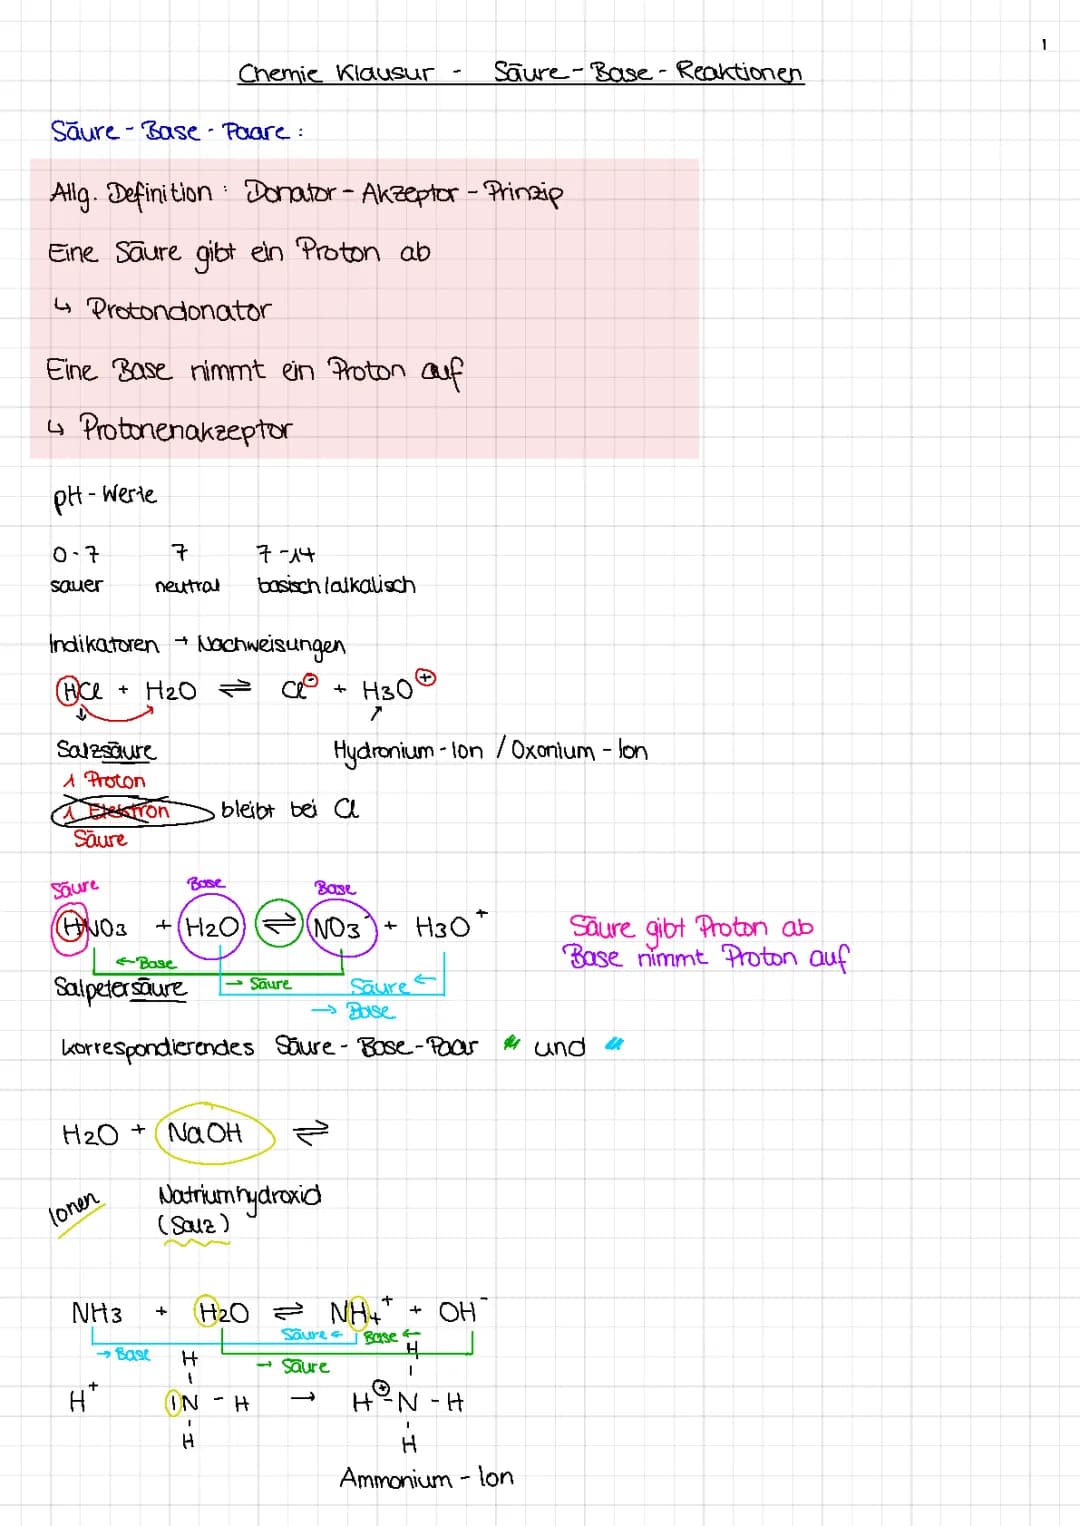 1
Chemie Klausur - Säure-Base-Reaktionen
Säure-Base-Paare:
Allg. Definition: Donator-Akzeptor-Prinzip
Eine Säure gibt ein Proton ab
↳ Protondonator
Eine Base nimmt ein Proton auf
↳ Protonenakzeptor
pH-Werte
0-7 7 7-14
sauer neutral basisch/alkalisch
Indikatoren → Nachweisungen
HCl + H2O ⇌ Cl⊖ + H3O⊕
Salzsäure Hydronium-Ion / Oxonium-Ion
1 Proton
1 Elektron bleibt bei Cl
Säure
Säure Base Base
HNO3 + H2O ⇌ NO3⁻ + H3O⁺ Säure gibt Proton ab
← Base Base nimmt Proton auf
Salpetersäure → Säure Säure ←
→ Base
korrespondierendes Säure-Base-Paar " und "
H2O + NaOH ⇌
Ionen Natriumhydroxid
(Salz)
NH3 + H2O ⇌ NH4⁺ + OH⁻
Säure ← Base ←
→ Base H → Säure H
H⁺ |N - H → H ⊕ - N - H
H H
Ammonium-Ion